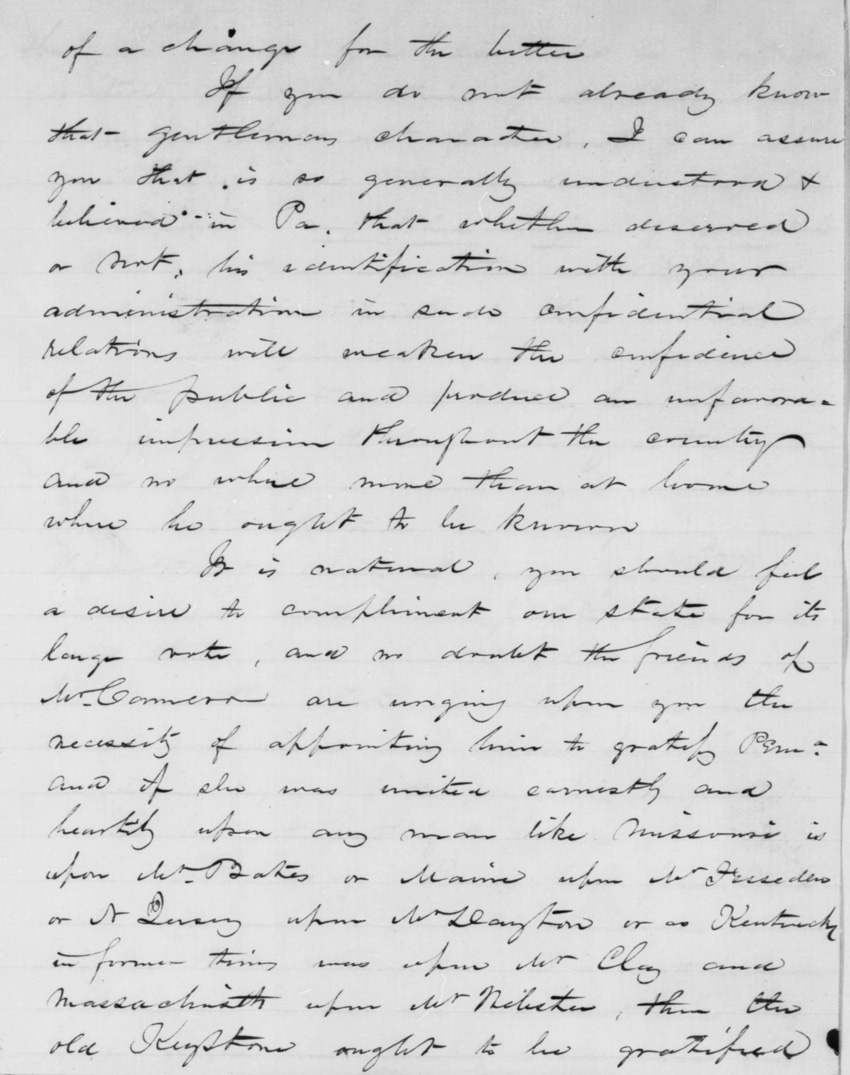 of a change for the better
If you do not already know
that gentlemans character, I can assure
you that is so generally understood &
believed in Pa. that whether deserved
or not, his identification with your
administration in such confidential
relations will weaken the confidence
of the public and produce an unfavora-
ble impression throughout the country
and no where more than at home
where he ought to be known
It is natural, you should feel
a desire to compliment our state for its
large vote, and no doubt the friends of
Mr. Cameron are urging upon you the
necessity of appointing him to gratify Penn:
and if she was united earnestly and
heartily upon any man like Missouri is
upon Mr. Bates or Maine upon Mr Fesseden
or N Jersey upon Mr Dayton or as Kentucky
in former times was upon Mr Clay and
Massachusetts upon Mr Webster, then the
old Keystone ought to be gratified